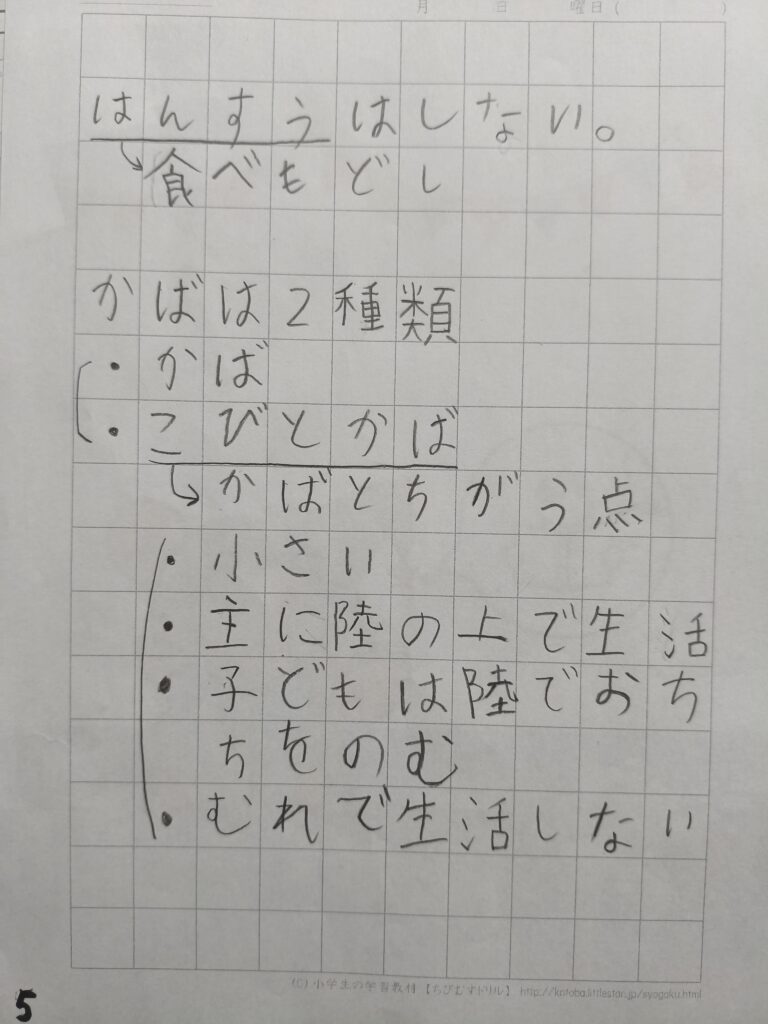 月 日 曜日( )
はんすうはしない。
↳食べもどし
かばは2種類
・かば
・こびとかば
↳かばとちがう点
・小さい
・主に陸の上で生活
・子どもは陸でおち
ちをのむ
・むれで生活しない
(C)小学生の学習教材【ちびむすドリル】 http://kotoba.littlestar.jp/syogaku.html
5